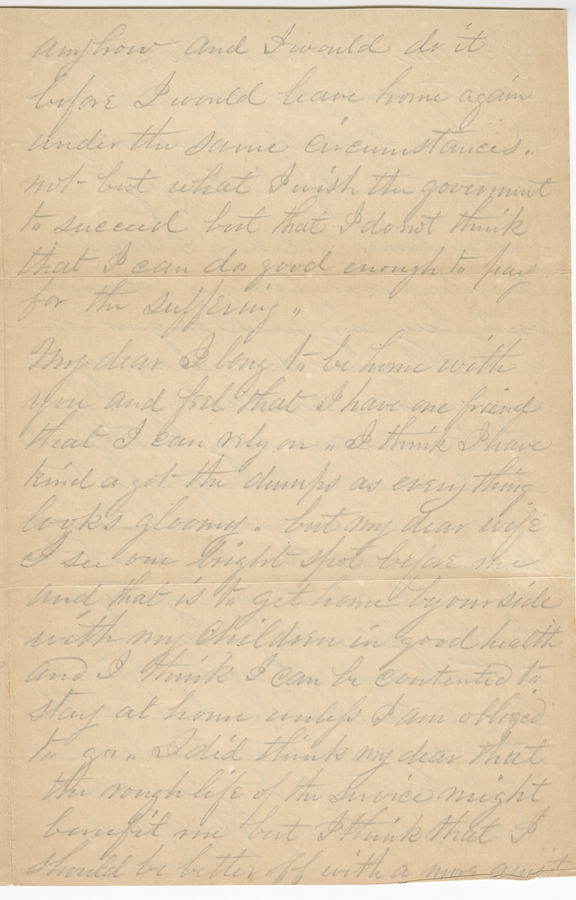 anyhow and I would do it
before I would leave home again
under the same circumstances.
not but what I wish the goverment
to succeed but that I do not think
that I can do good enough to pay
for the suffering.
My dear I long to be home with
you and feel that I have one friend
that I can rely on. I think I have
kind a got the dumps as everything
looks gloomy. but my dear wife
I see one bright spot before me
and that is to get home by your side
with my children in good health
and I think I can be contented to
stay at home unless I am obliged
to go. I did think my dear that
the rough life of the service might
benefit me but I think that I
should be better off with a more quiet